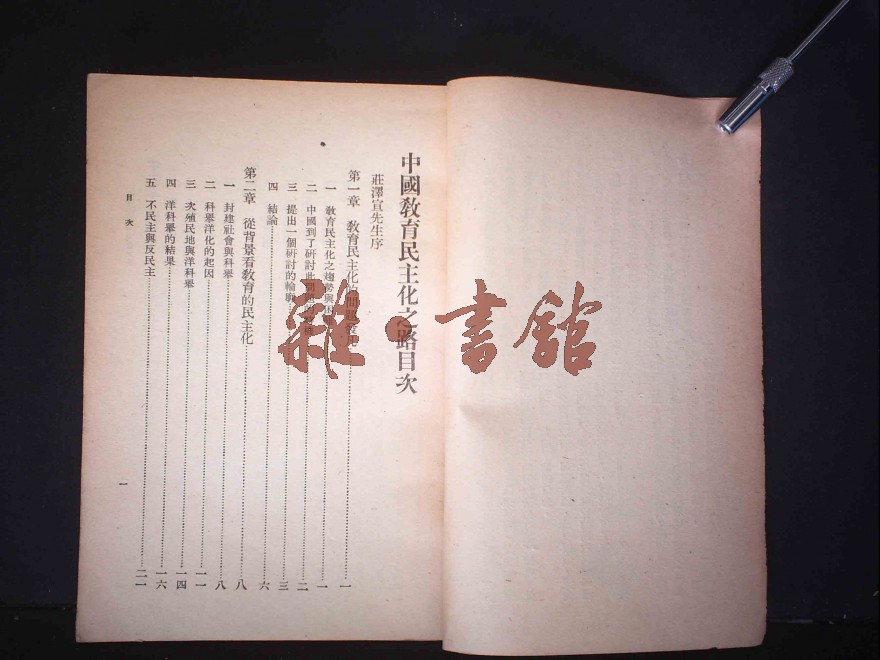 中國教育民主化之路目次
莊澤宣先生序
第一章 教育民主化的問題 一
一 教育民主化之趨勢與 一
二 中國到了研討此問題 二
三 提出一個研討的輪廓 三
四 結論 六
第二章 從背景看教育的民主化 八
一 封建社會與科舉 八
二 科舉洋化的起因 一一
三 次殖民地與洋科舉 一四
四 洋科舉的結果 一六
五 不民主與反民主 二一
目次
一
雜·書館